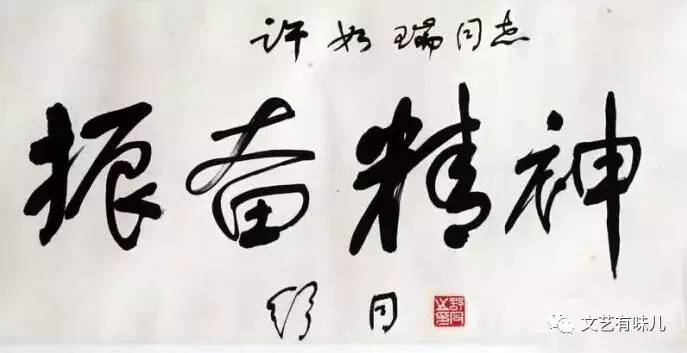 许如瑞同志
振奋精神
舒同
文艺有味儿